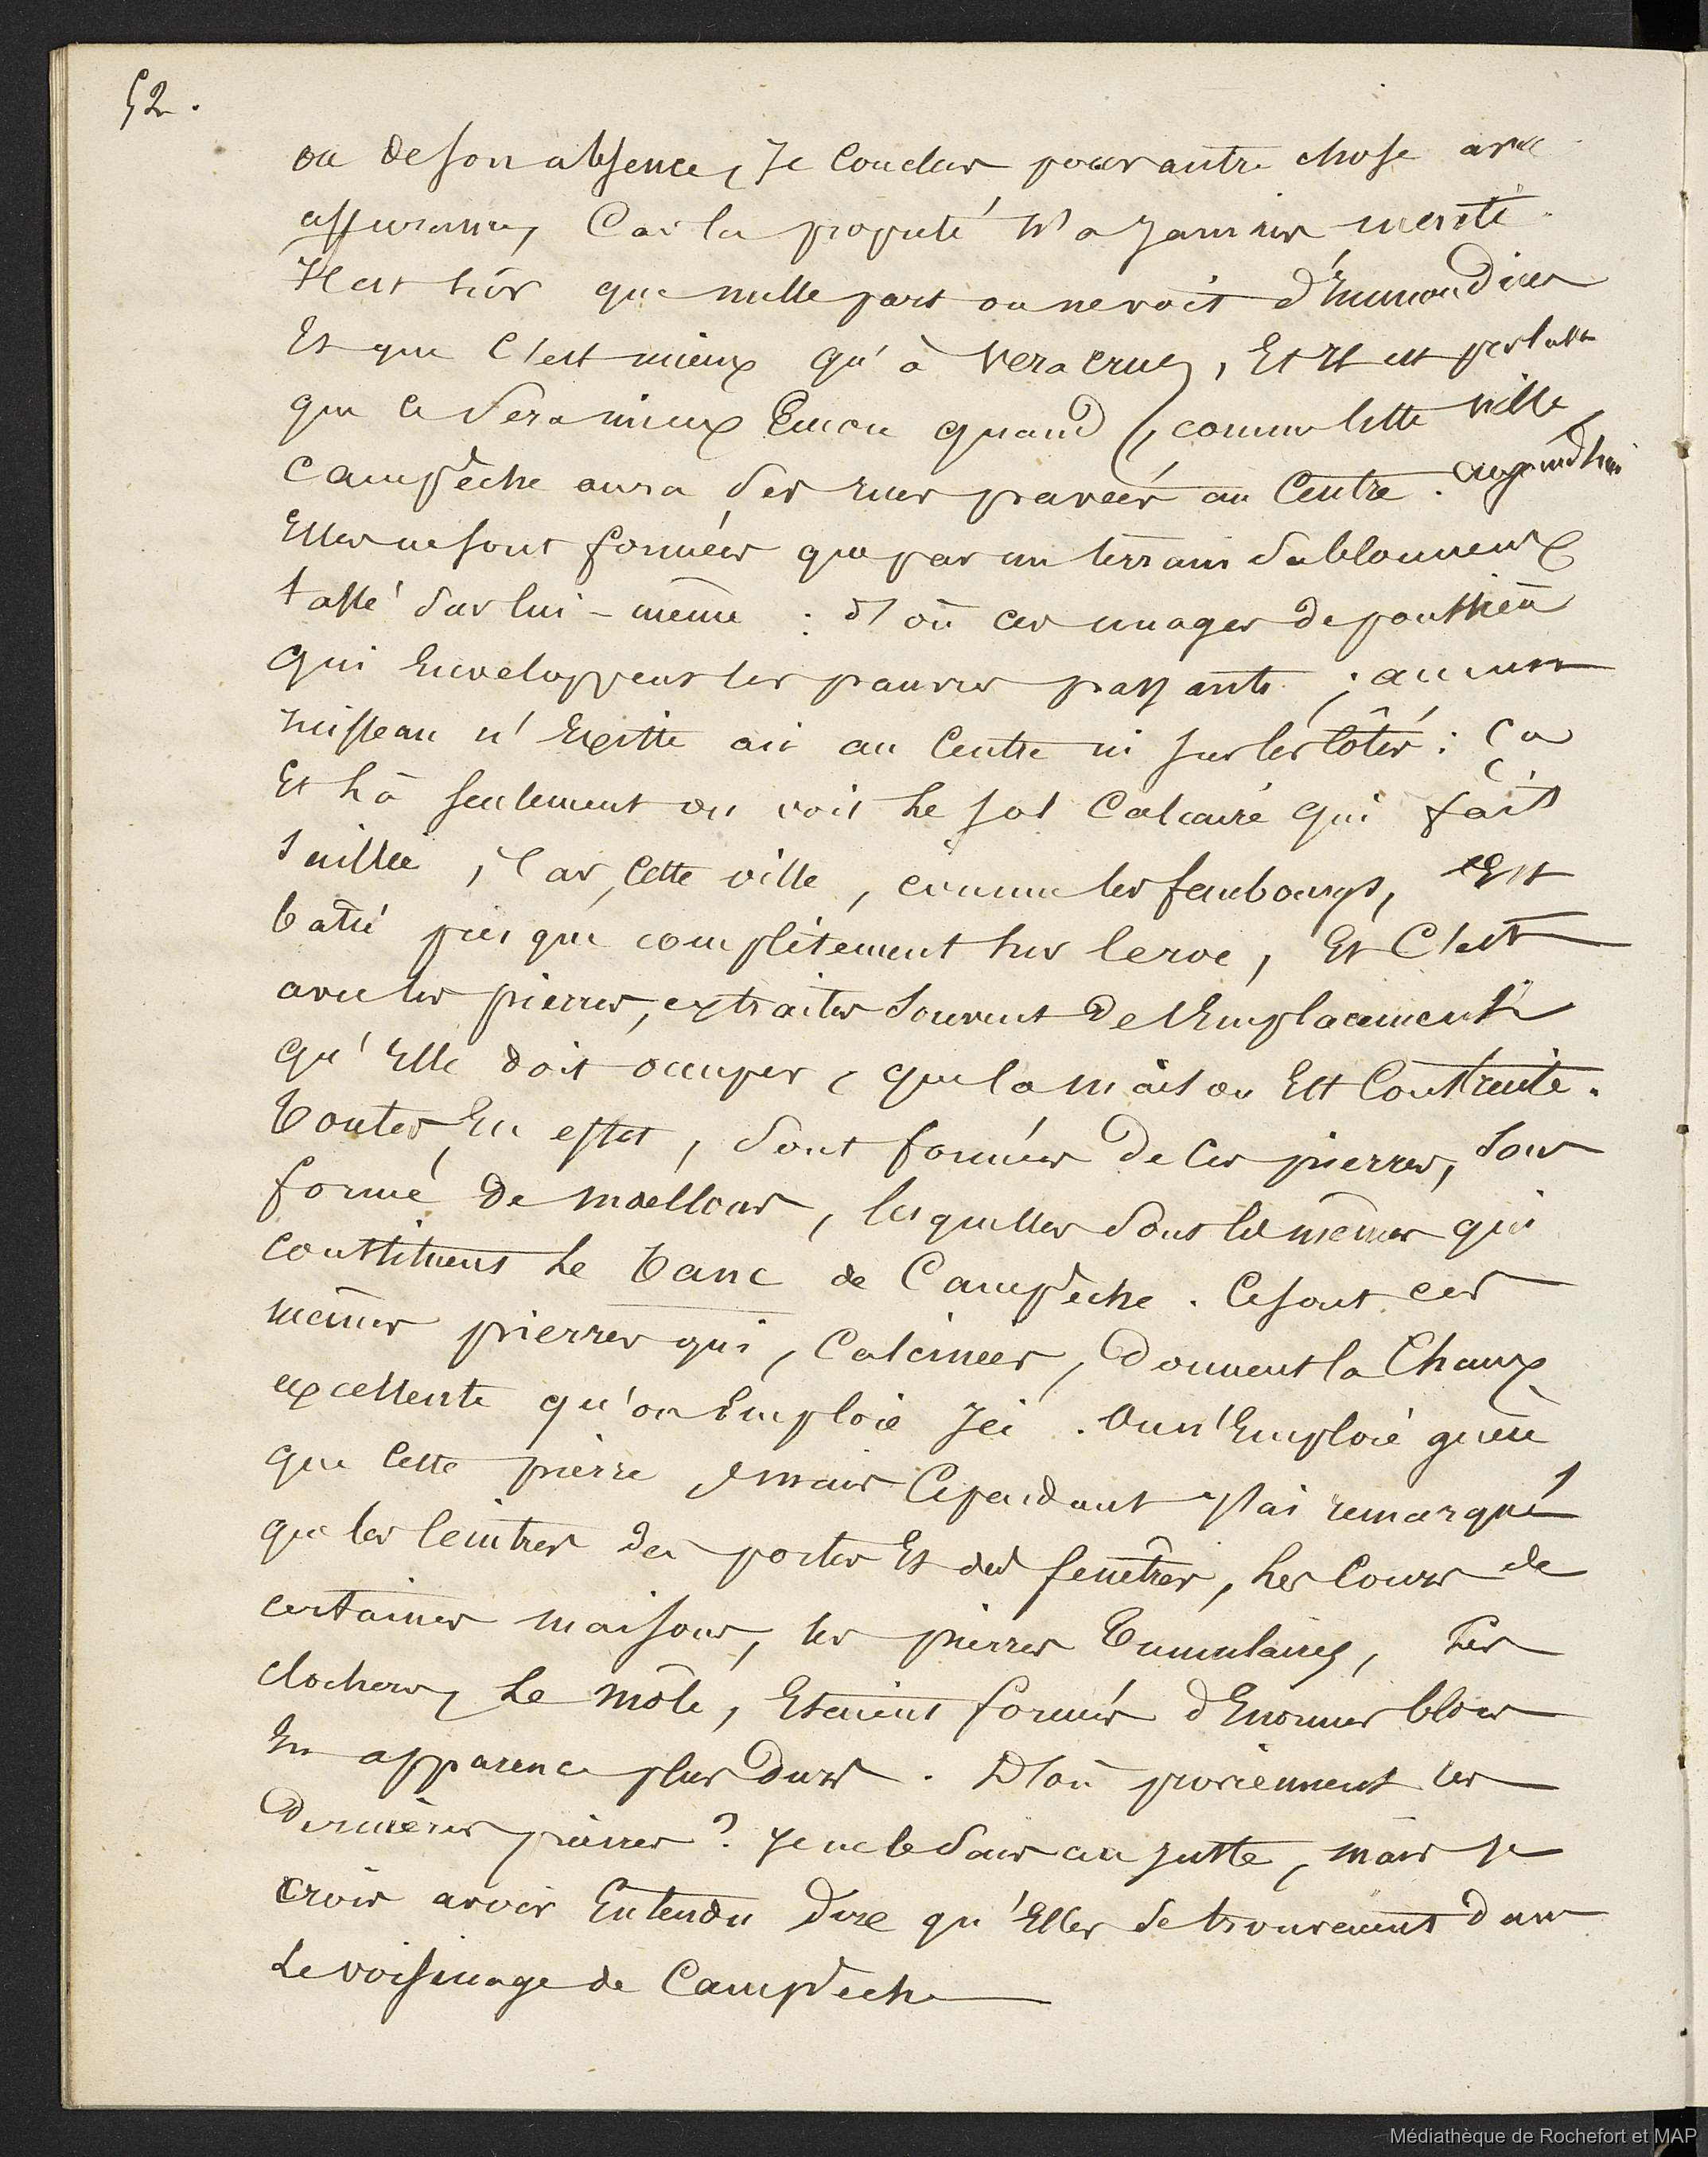 52.
ou de son absence, Je conclus pour autre chose avec
assurance, Car la propreté N'a jamais menti.
Il est sûr que nulle part on ne voit d'Immondices
Et que C'est mieux qu'à Vera cruz, Et Il est probable
que ce sera mieux Encore quand, comme cette ville,
campêche aura des rues pavées au Centre. aujourd'hui
Elles ne sont formées que par un terrain sablonneux
tassé sur lui-même : d'où ces nuages de poussière
qui Enveloppent les pauvres passants ; aucun
ruisseau n'Existe ni au Centre ni sur les côtés : Ça
Et Là seulement on voit Le sol Calcaire qui fait
saillie, Car, Cette ville, comme les faubourgs, Est
bâtie presque complètement sur le roc, Et C'est
avec les pierres, extraites souvent de l'Emplacement
qu'Elle doit occuper, que la maison Est Construite.
Toutes, En effet, sont formées de Ces pierres, sous
forme de moellons, lesquelles sont les mêmes qui
constituent Le banc de Campêche. Ce sont ces
mêmes pierres qui, Calcinées, Donnent la Chaux
excellente qu'on Emploie Ici. On n'Emploie guère
que Cette pierre mais Cependant J'ai remarqué
que les Ceintres des portes Et des fenêtres, Les Cours de
certaines maisons, les pierres Tumulaires, Les
clochers, Le Môle, Etaient formés d'Enormes blocs
En apparence plus Durs. D'où proviennent ces
Dernières pierres ? Je ne le sais au juste, mais je
crois avoir Entendu Dire qu'Elles se trouvaient dans
Le voisinage de Campêche
Médiathèque de Rochefort et MAP